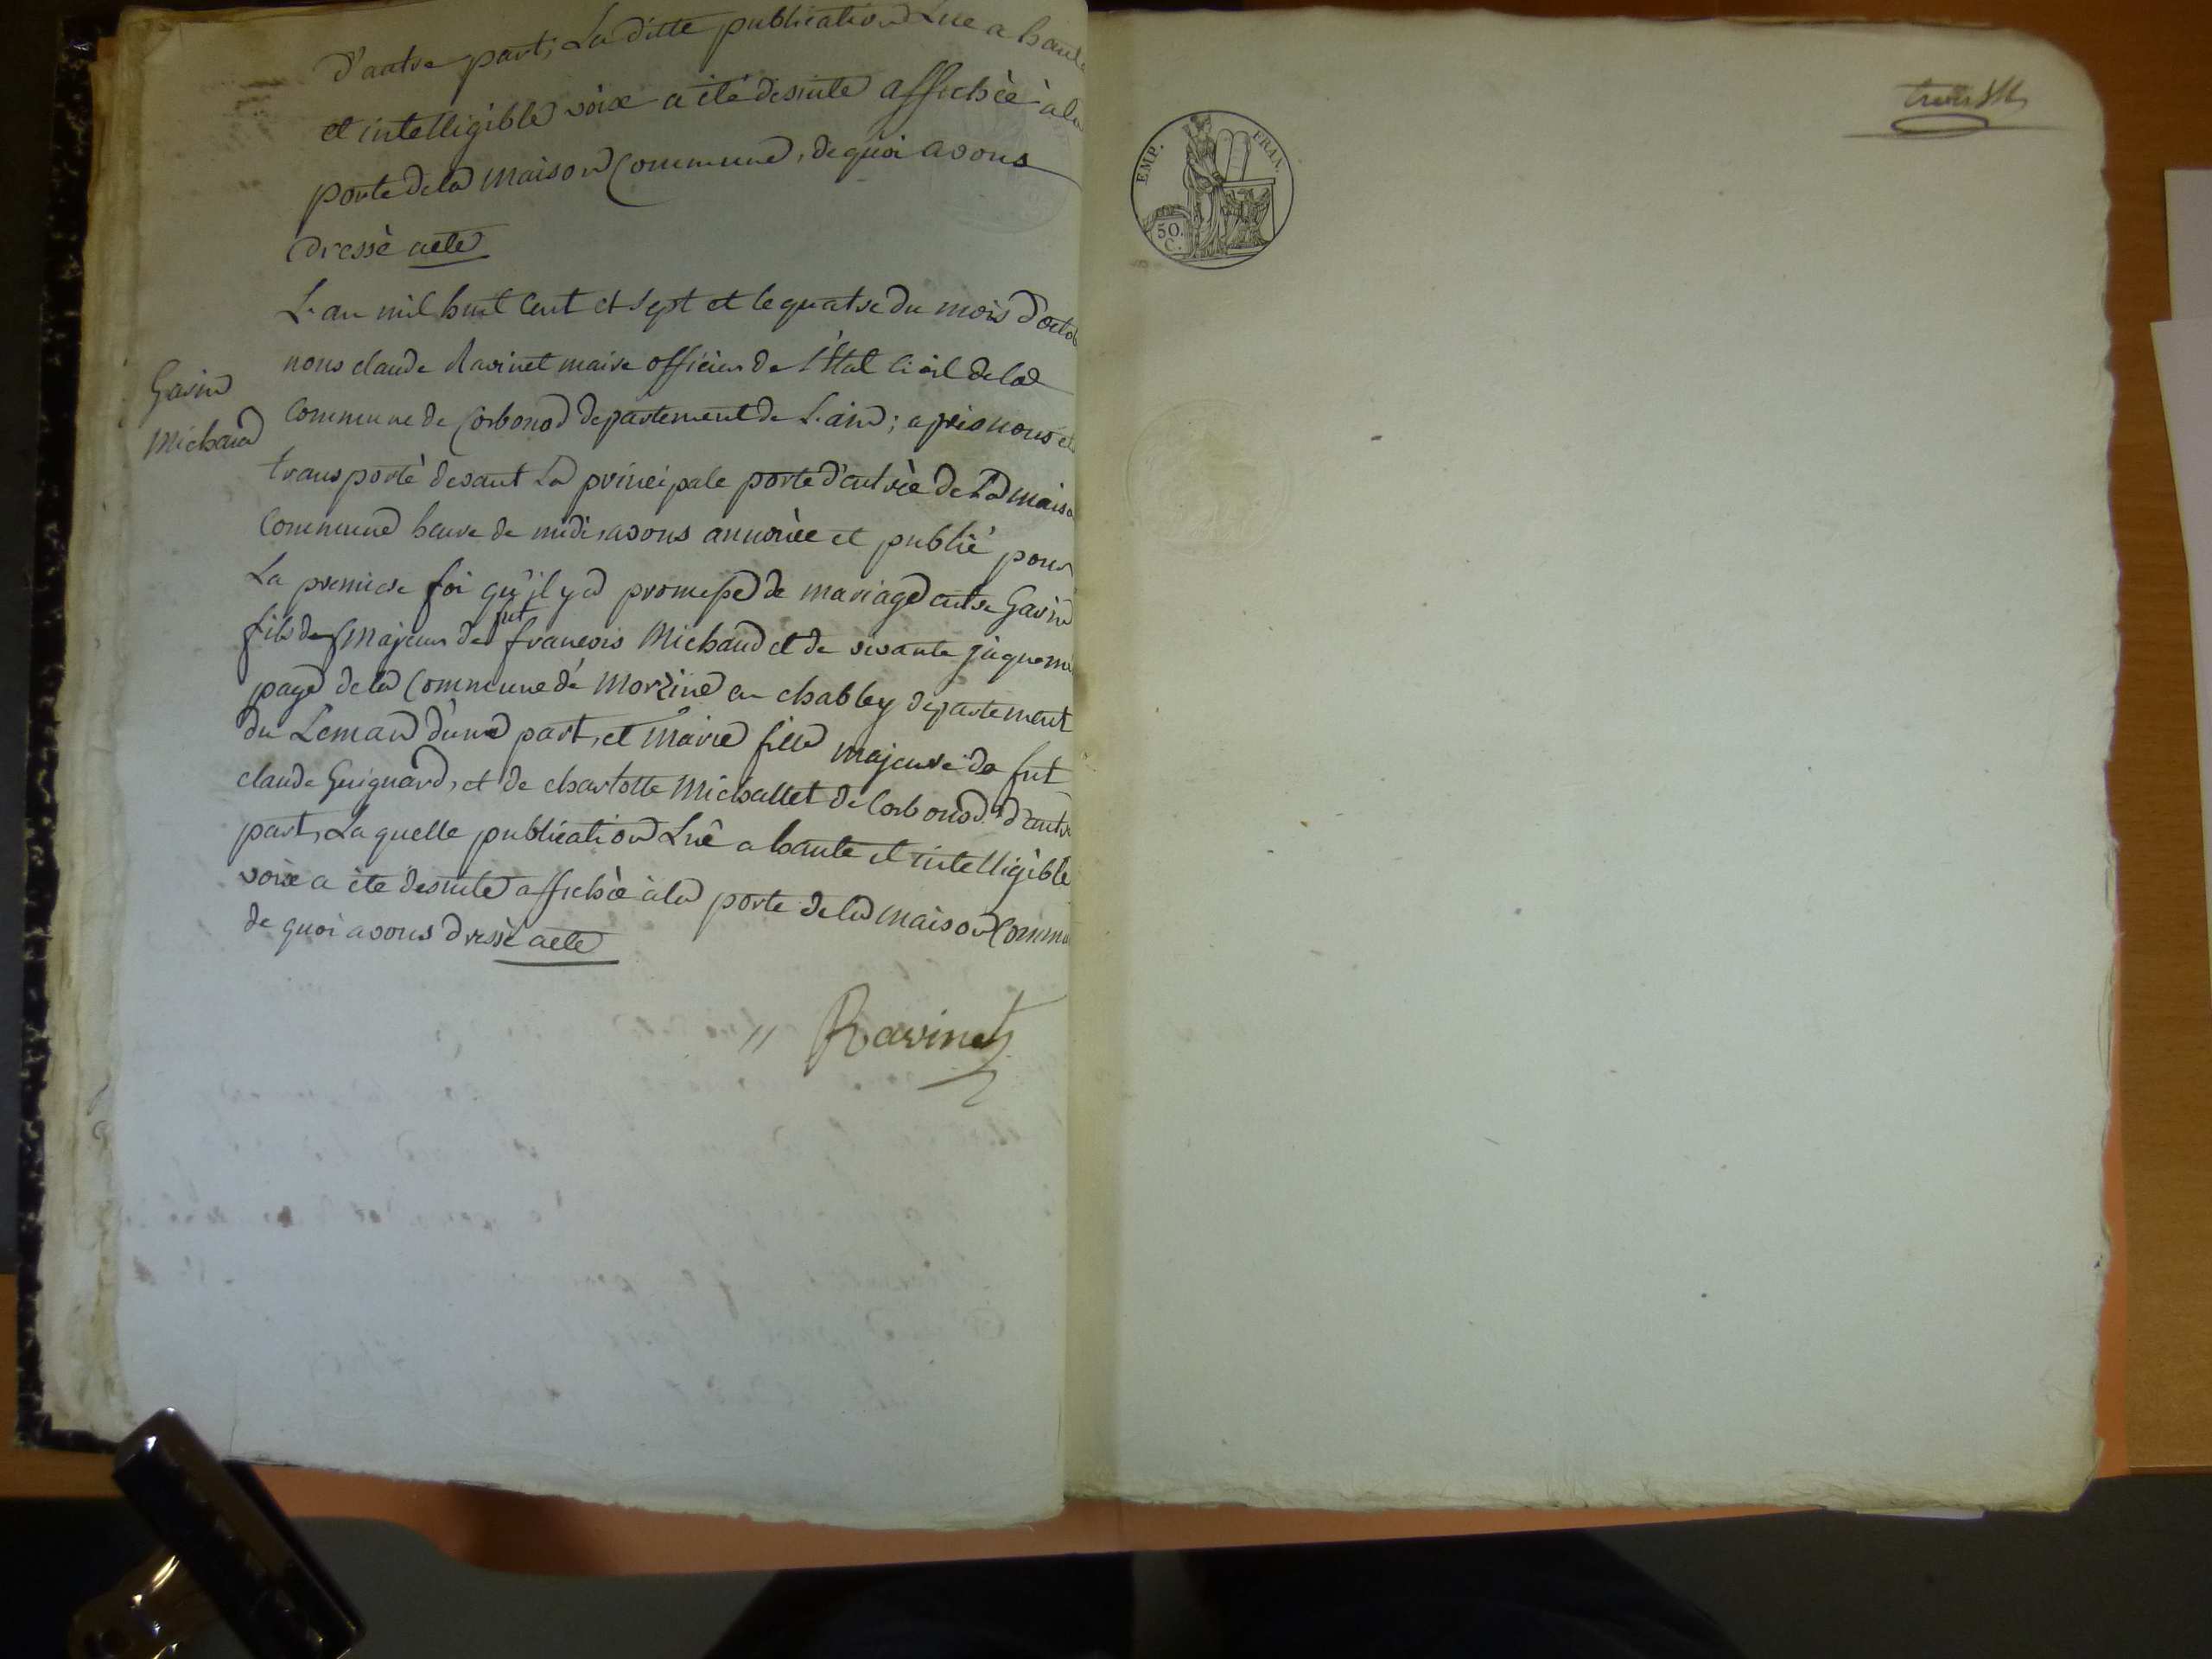 d'autre part, La ditte publication Lue a haute
et intelligible voixe a été desuite affichèe à la
porte de la maison Commune, de quoi avons
dressè acte
L'an mil huit Cent et sept et le quatre du mois d'octob
nous claude Ravinet maire officier de l'Etat Civil de la
Gavin
Commune de Corbonod departement de L'ain; a prés nous etr
Michaud
transportè devant La principale porte d'entrèe de La maiso
Commune heure de midi, avons annoncée et publié pour
La premiere foi qu'il y a promesse de mariage entre Gavin
fils de majeur de fut francois Michaud et de vivante
page de la Commune de Morzine en chabley departement
du Leman d'une part, et Marie fille majeure de fut
claude Guignard, et de charlotte Michallet de Corbonod d'autre
part, La quelle publication Luê a haute et intelligible
voixe a été desuite affichèe à la porte de la maison Commu
de quoi avons dressè acte
Ravinet
trois
EMP. FRAN.
50.
C.